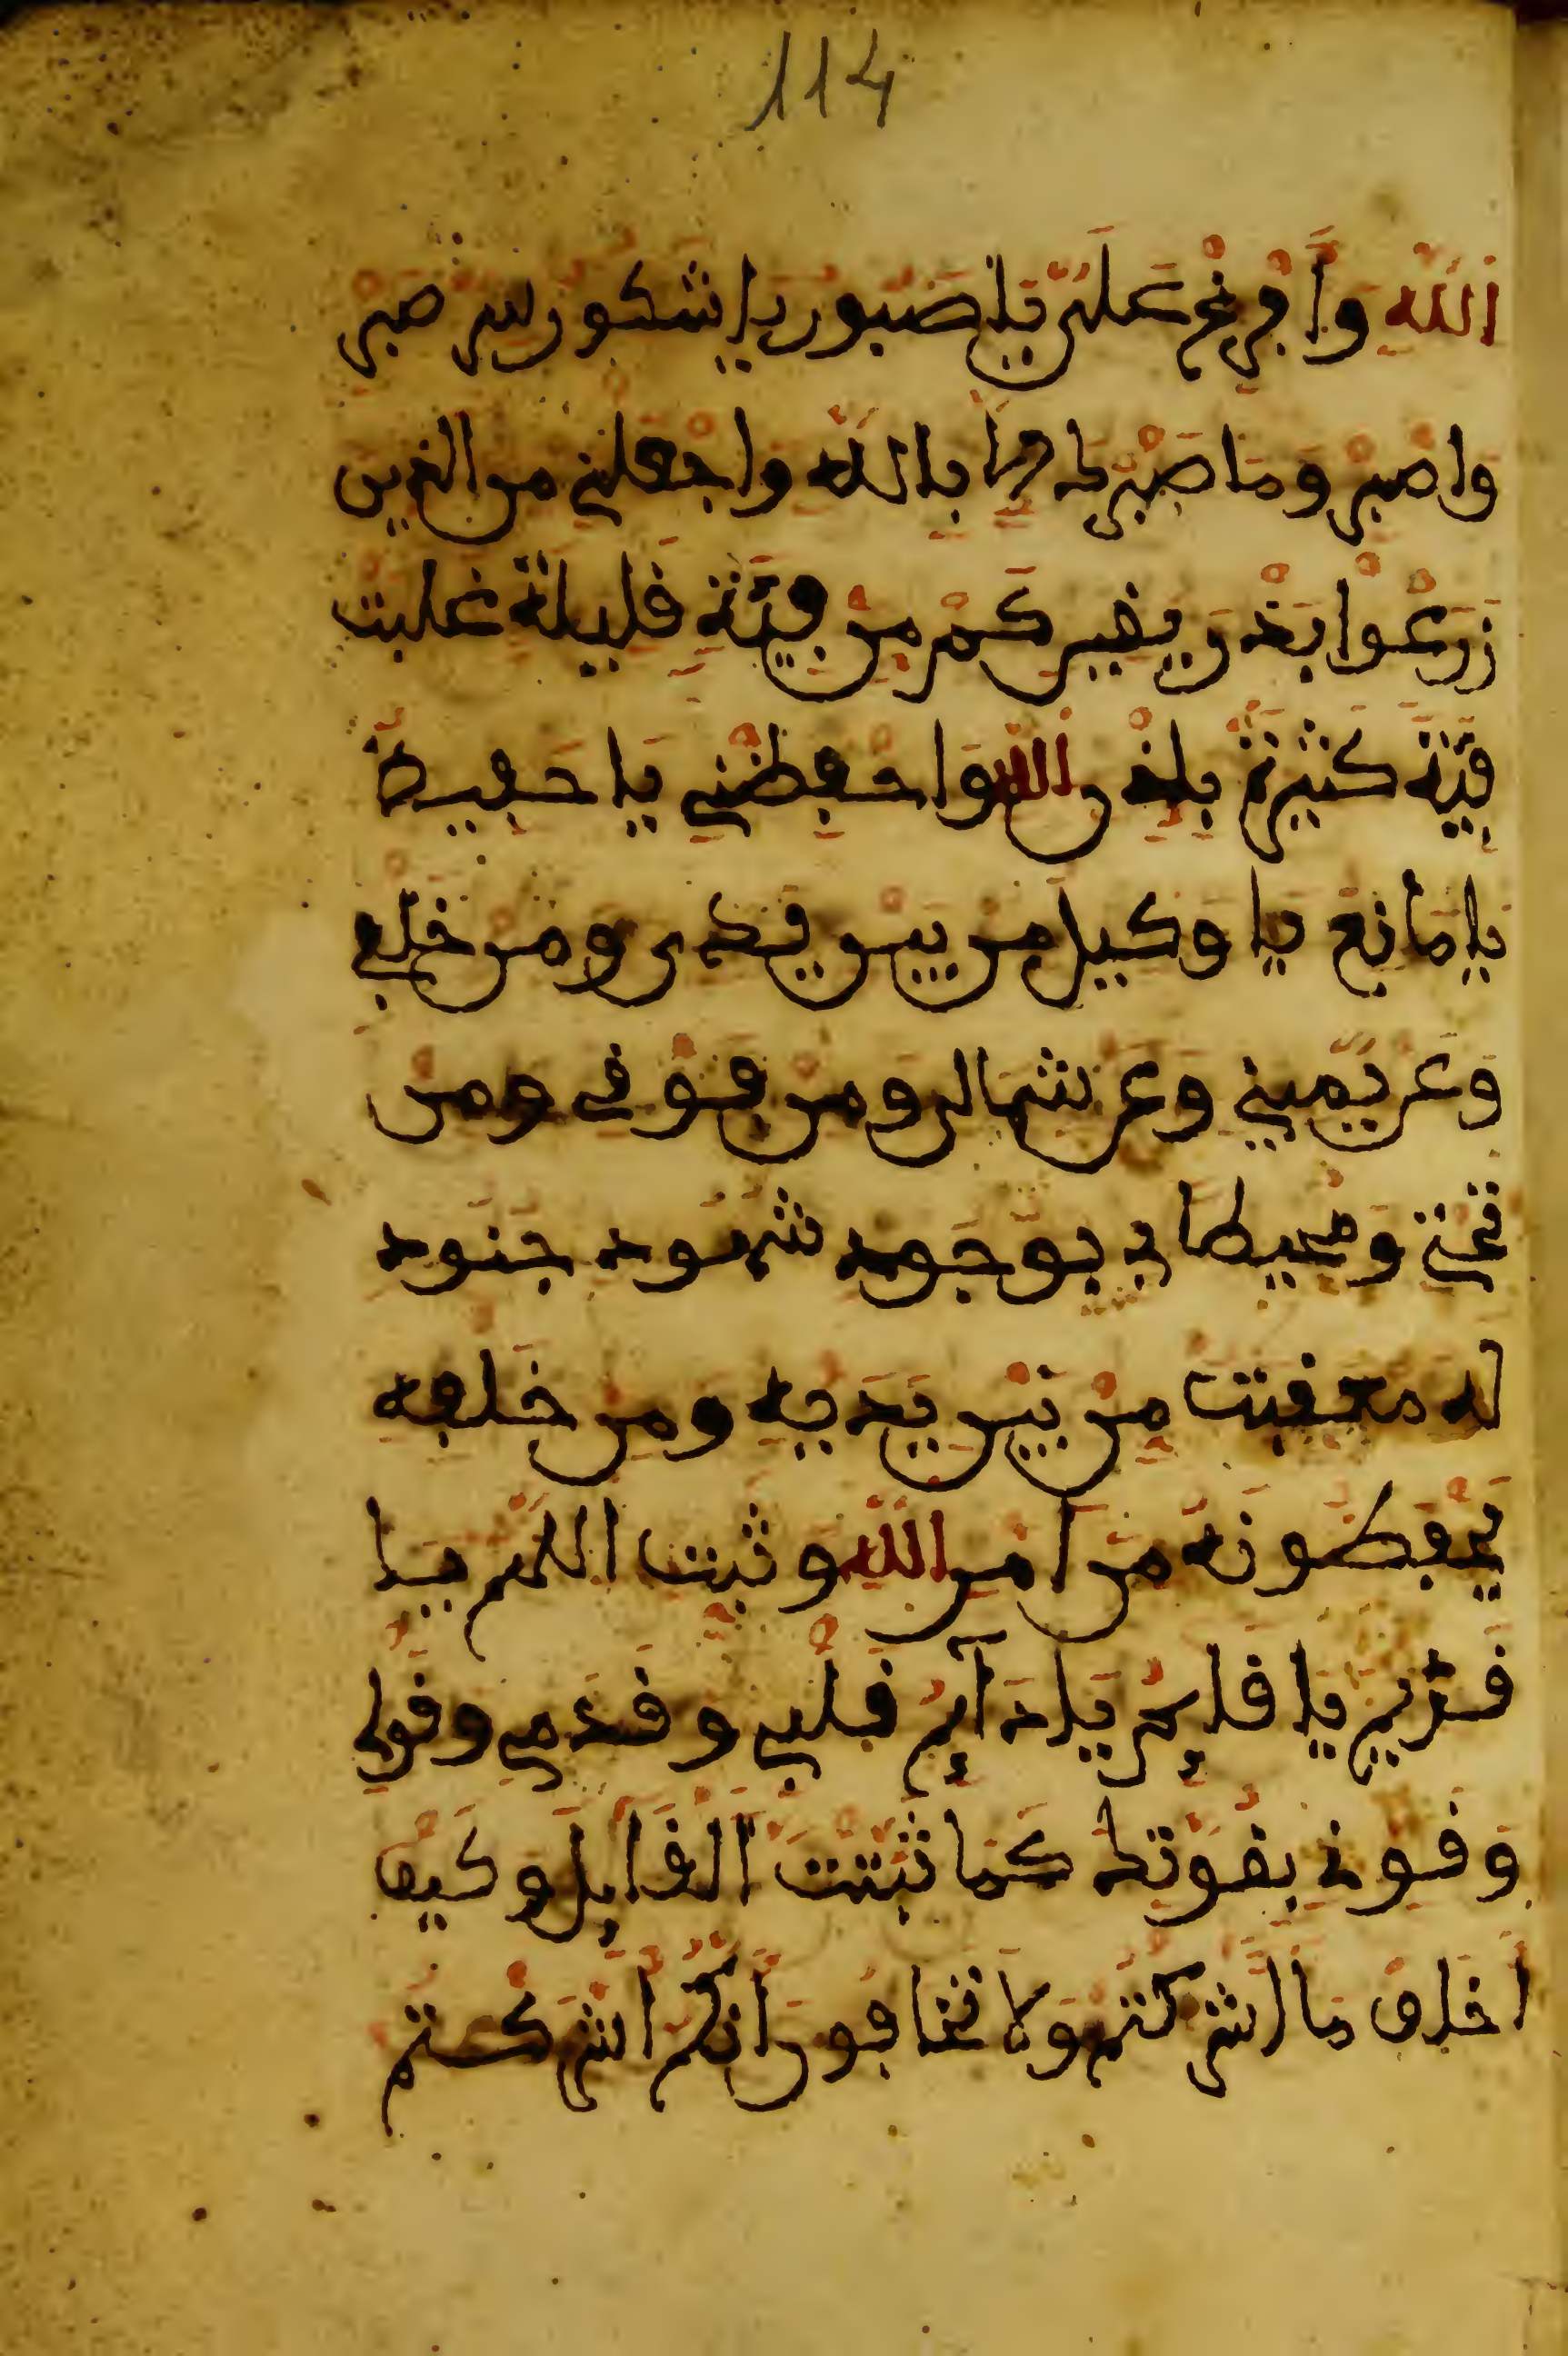 114
الله وافرغ على يا صبور يا شكور سر صبر
واصبر وما صبرك الا بالله واجعلني من الذين
زرعوا بذر يفير كم من فئة قليلة غلبت
فئة كثيرة بإذن الله واحفظني يا حفيظ
يا مانع يا وكيل من بين يدى ومن خلفى
وعن يميني وعن شمالى ومن فوقى ومن
تحتى ومحيطا بى بوجود شهود جنود
له معقبت من بين يديه ومن خلفه
يحفظونه من امر الله وثبت اللهم يا
قديم يا قايم يا دآيم قلبى وقدمى وقولى
وقوة بقوتك كما ثبتت القايل وكيف
اخاف ما اشركتم ولا تخافون انكم اشركتم